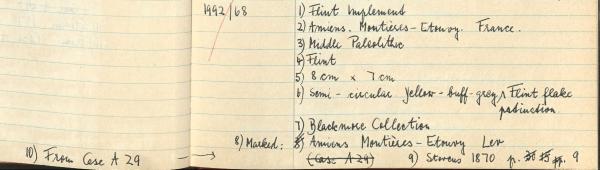 1992/68
1) Flint Implement
2) Amiens. Montières-Etouvy. France.
3) Middle Paleolithic
4) Flint
5) 8 cm x 7 cm
6) Semi-circular yellow-buff-grey Flint flake
patination
7) Blackmore Collection
8) Marked: Amiens Montières-Etouvy Lev
(Case A 29) 9) Stevens 1870 p. 9
10) From Case A 29 →